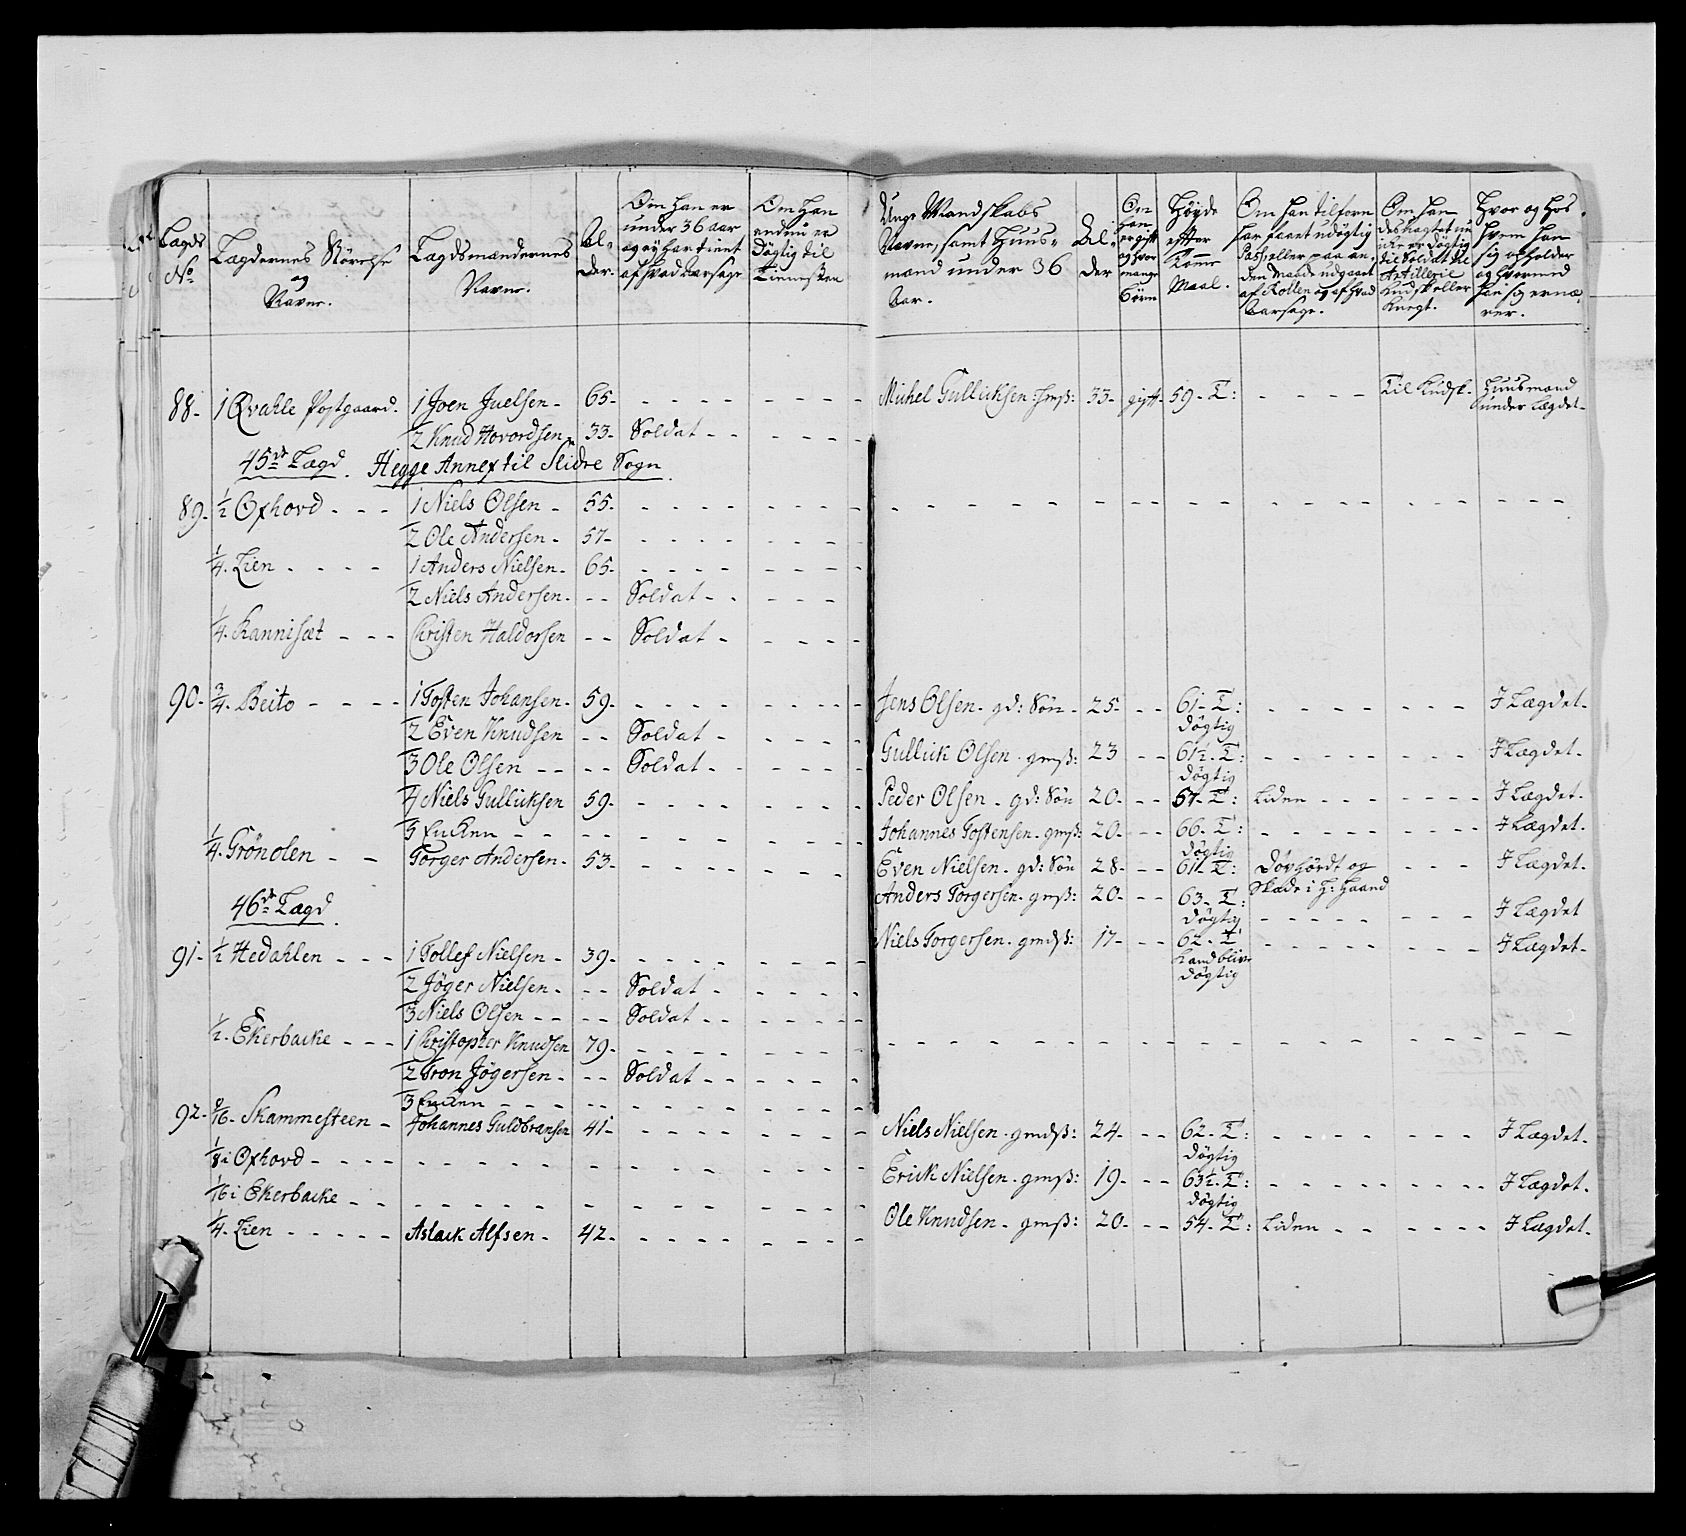 Lægds
No
Lægdernes Störelse
og
Navne.
Lægdsmændernes
Navne.
Al-
der.
Om han er
under 36 aar
og ej har tient
af hvad Aarsage
Om han
endnu er
Døgtig til
Tienesten
Unge Mandskabs
Navne, samt Huus-
mænd under 36
Aar.
Al-
der
Om
han
er gift
og hvor
mange
Børn
Høyde
efter
Maal.
Om han tilforn
har faaet udögtig
Pass eller paa an-
den Maade udgaaet
af Rollen og af hvad
Aarsage.
Om han
desuagtet nu
ikke er døgtig
til Soldat til
Artillerie
Kudsk eller
Knegt.
Hvor og hos
hvem han
sig opholder
og hvormed
han sig ernæ-
rer.
88- 1 Qvahle Postgaard. 1 Joen Juelsen - 65- - - - -
Michel Gullicksen : 33- gift- 59- T: - - - - Til Kudsk- Huusmand
under Lægdet-
2 Knud Hovordsen 33- Soldat - - - - -
45de Lægd. Hegge Annex til Slidre Sogn.
89- 1/2 Oxhovd - - - 1 Niels Olsen - 55- - - - -
2 Ole Andersen - 57- - - - -
1/4. Lien - - - - 1 Anders Nielsen - 65- - - - -
2 Niels Andersen - - - Soldat - - - - -
1/4. Kannisæt - - - Christen Haldorsen - - Soldat - - - -
90- 3/4. Beito - - - - 1 Tosten Johansen - 59- - - - -
Jens Olsen - gd: Søn - 25- - - 61- T: - - - - I Lægdet-
Døgtig
2 Even Knudsen - - Soldat - - - -
Gullick Olsen - gmß: 23 - - 61½- T: - - - - I Lægdet-
Døgtig
3 Ole Olsen - - - - Soldat - - - -
4 Niels Gullicksen 59- - - - -
Peder Olsen - gd: Søn 20- - - 57- T: Liden - - - - I Lægdet-
5 Encken - - - - - -
Johannes Tostensen - gmß: 20- - - 66- T: - - - - I Lægdet-
Døgtig
1/4. Grönolen - - Torger Andersen - 53- - - - -
Even Nielsen - gd: Søn 28- - - 61- T: Dövhördt og - - - I Lægdet-
Skade i H: Haand
Anders Torgersen - gmß: 20- - - 63- T: - - - - I Lægdet
Døgtig
46de Lægd.
Niels Torgersen - gmdß: 17- - - 62- T - - - - I Lægdet-
Kand blive
Døgtig
91- 1/2 Hedahlen - - - 1 Tollef Nielsen - 39- - - - -
2 Jøger Nielsen - - - Soldat - - - -
3 Niels Olsen - - - - Soldat - - - -
1/2. Ekerbacke - - - 1 Christopher Knudsen 79- - - - -
2 Tron Jøgersen - - - Soldat - - - -
3 Encken - - - - - -
92- 8/16- Skammesteen - Johannes Guldbransen 41- - - - -
Niels Nielsen - gmdß: 24- - - 62- T: - - - - I Lægdet-
Døgtig
1/8 i Oxhovd - - - - - - -
Erick Nielsen - gmß: 19- - - 63½- T: - - - - I Lægdet-
Døgtig
1/16 i Ekerbacke - - - - - -
1/4. Lien - - - - - Aslack Alfsen - 42- - - - -
Ole Knudsen - gmß: 20- - - 54- T: Liden - - - - I Lægdet-